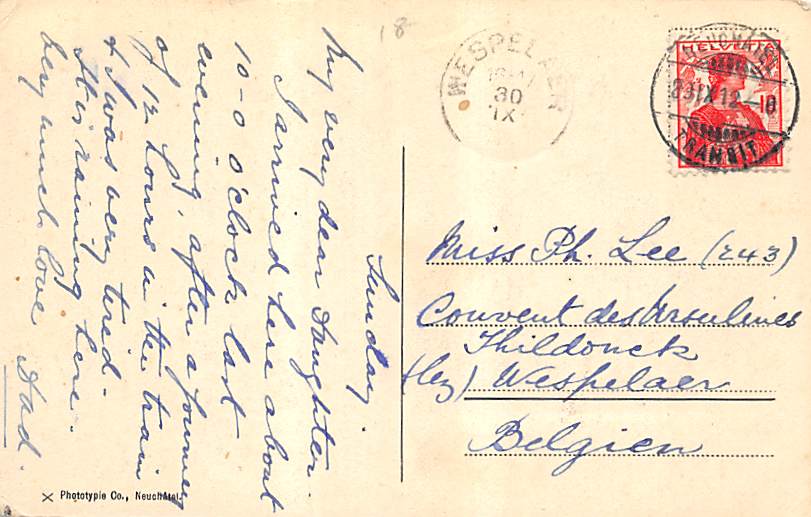 18
Sunday.
My very dear Daughter.
I arrived here about
10-0 o'clock last
evening, after a journey
of 12 hours in the train
& I was very tired.
It is raining here.
very much love Dad.
WESPELAER
30
IX
HELVETIA
29 IX 12-10
TRANSIT
10
Miss Ph. Lee (243)
Couvent des Ursulines
Thildonck
(lez) Wespelaer
Belgien
X Phototypie Co., Neuchâtel.